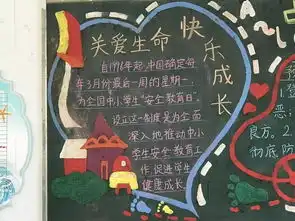 关爱生命
快乐成长
自1996年起,中国确定每
年3月份最后一周的星期一,
为全国中小学生“安全教育日”
设立这一制度是为全面
深入地推动中小
学生安全教育工
作,促进学生
健康成长。
恶:
良方。2
彻底防